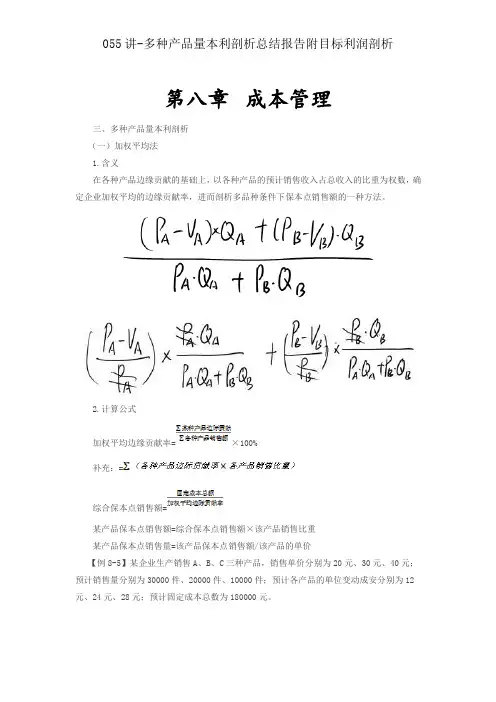 055讲-多种产品量本利剖析总结报告附目标利润剖析
第八章 成本管理
三、多种产品量本利剖析
(一)加权平均法
1.含义
在各种产品边缘贡献的基础上,以各种产品的预计销售收入占总收入的比重为权数,确
定企业加权平均的边缘贡献率,进而剖析多品种条件下保本点销售额的一种方法。
(P_A-V_A)×Q_A+(P_B-V_B)·Q_B
P_A·Q_A+P_B·Q_B
(P_A-V_A / P_A)× P_A·Q_A / P_A·Q_A+P_B·Q_B +(P_B-V_B / P_B)× P_B·Q_B / P_A·Q_A+P_B·Q_B
2.计算公式
加权平均边缘贡献率=∑某种产品边际贡献/∑各种产品销售额×100%
补充:=∑(各种产品边际贡献率×各产品销售比重)
综合保本点销售额=固定成本总额/加权平均边际贡献率
某产品保本点销售额=综合保本点销售额×该产品销售比重
某产品保本点销售量=该产品保本点销售额/该产品的单价
【例8-5】某企业生产销售A、B、C三种产品,销售单价分别为20元、30元、40元;
预计销售量分别为30000件、20000件、10000件;预计各产品的单位变动成安分别为12
元、24元、28元;预计固定成本总数为180000元。